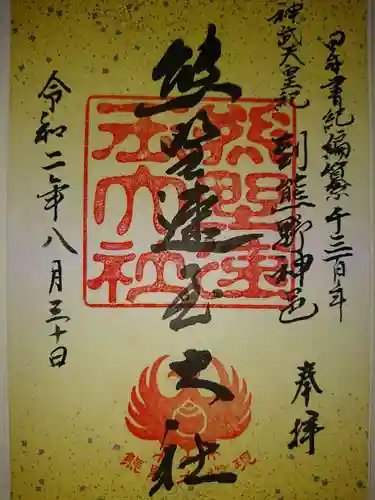 日本書紀編纂千三百年
神武天皇紀 到熊野神邑
奉拝
熊野速玉大社
熊野速
玉大社
令和二年八月三十日